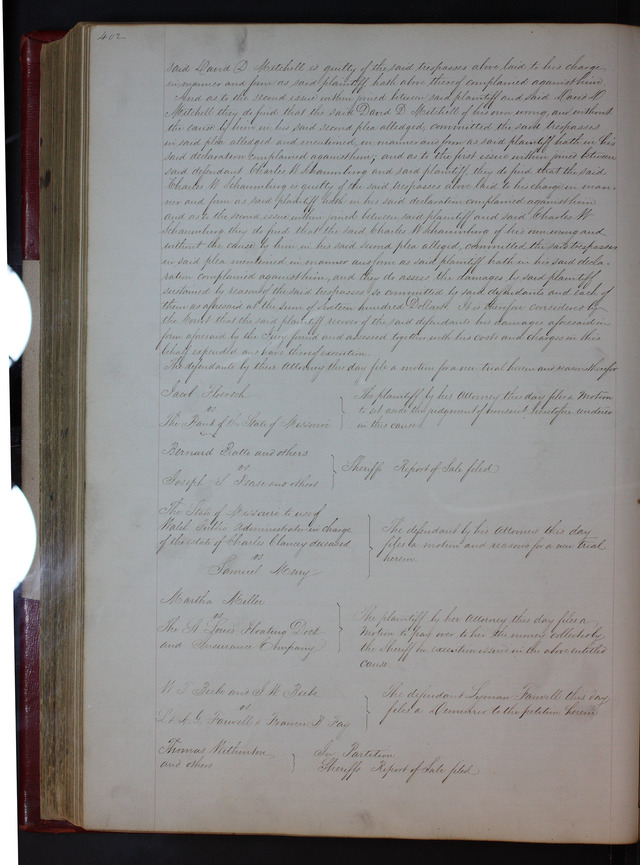 402
said David D Mitchell is guilty of the said trespasses above laid to his charge
in manner and form as said plaintiff hath above thereof complained against him
And as to the second issue within joined between said plaintiff and said David D
Mitchell they do find that the said David D Mitchell of his own wrong, and without
the cause by him in his said second plea alledged, committed the said trespasses
in said plea alledged and mentioned, in manner and form as said plaintiff hath in his
said declaration complained against him, and as to the first issue within joined between
said defendant Charles W Schaumburg and said plaintiff they do find that the said
Charles W Schaumburg is guilty of the said trespasses above laid to his charge in man-
ner and form as said plaintiff hath in his said declaration complained against him
and as to the second issue within joined between said plaintiff and said Charles W
Schaumburg they do find that the said Charles W Schaumburg of his own wrong and
without the cause by him in his said second plea alleged, committed the said trespasses
in said plea mentioned in manner and form as said plaintiff hath in his said decla-
ration complained against him, and they do assess the damages by said plaintiff
sustained by reason of the said trespasses so committed by said defendants and each of
them as aforesaid at the sum of sixteen hundred Dollars. It is therefore considered by
the Court that the said plaintiff recover of the said defendants his damages aforesaid in
form aforesaid by the Jury found and assessed together with his costs and charges in this
behalf expended and have thereof execution.
The defendants by their Attorney this day file a motion for a new trial herein and reasons therefor
Jacob
vs
The Bank of the State of Missouri
The plaintiff by his Attorney this day files a Motion
to set aside the judgment of nonsuit heretofore rendered
in this cause
Bernard and others
vs
Joseph S Pease and others
Sheriffs Report of Sale filed
The State of Missouri to use of
Walsh Public Administrator in charge
of the estate of Charles Clancy deceased
vs
Samuel
The defendant by his Attorney this day
files a motion and reasons for a new trial
herein
Martha Miller
vs
The St Louis Floating Dock
and Insurance Company
The plaintiff by her Attorney this day files a
Motion to pay over to her the money collected by
the Sheriff on execution issued in the above entitled
cause
W T Beebe and S H Beebe
vs
L & A G Farwell & Francis B Fay
The defendant Lyman Farwell this day
files a Demurrer to the petition herein
Thomas Withinton
and others
In Partition
Sheriffs Report of Sale filed